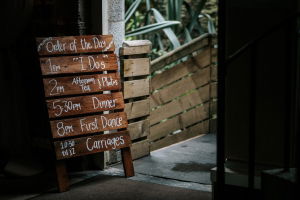 Order of the Day
1pm "I Do's"
2pm Afternoon Tea & Photos
5:30pm Dinner
8pm First Dance
Carriages